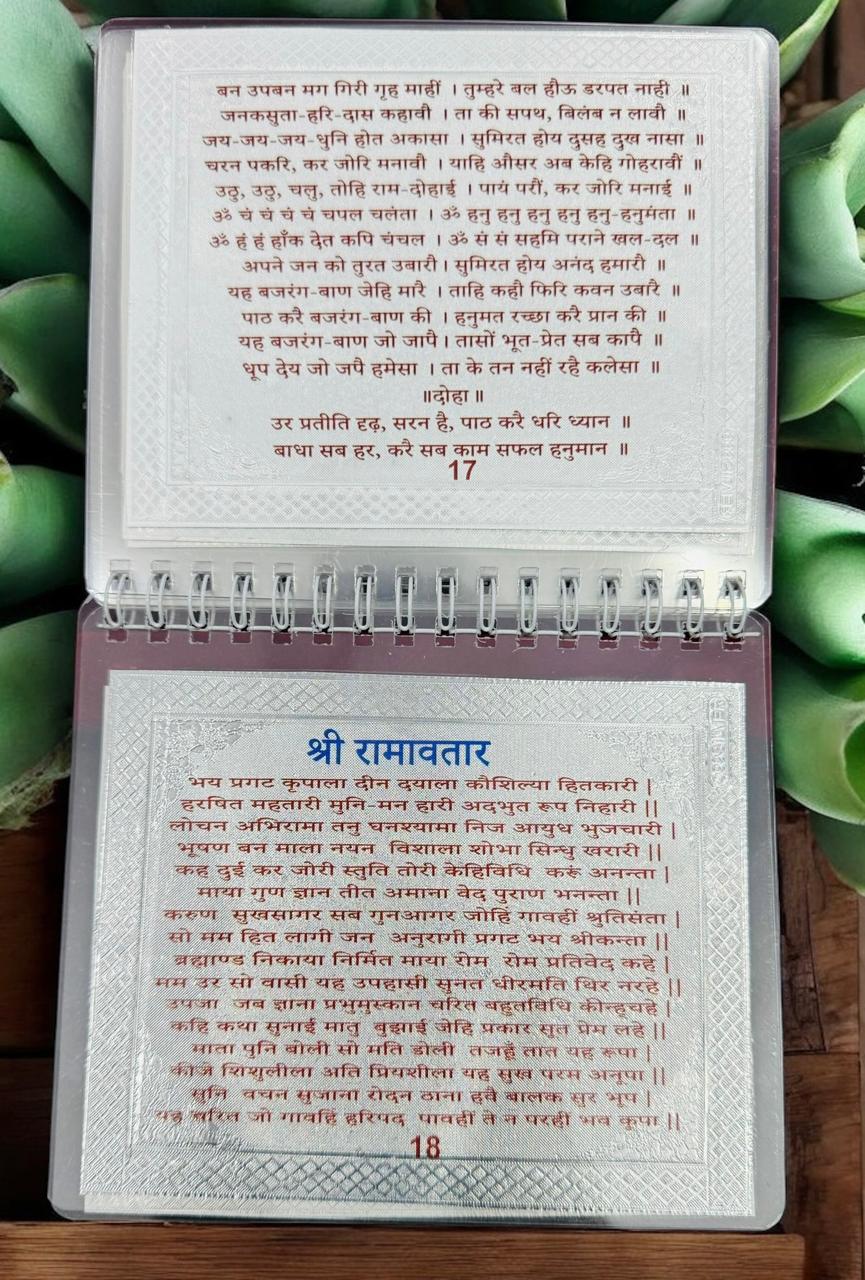 बन उपबन मग गिरी गृह माहीं । तुम्हरे बल हौऊ डरपत नाही ॥
जनकसुता-हरि-दास कहावौ । ता की सपथ, बिलंब न लावौ ॥
जय-जय-जय-धुनि होत अकासा । सुमिरत होय दुसह दुख नासा ॥
चरन पकरि, कर जोरि मनावौ । याहि औसर अब केहि गोहरावौं ॥
उठु, उठु, चलु, तोहि राम-दोहाई । पायं परौं, कर जोरि मनाई ॥
ॐ चं चं चं चं चपल चलंता । ॐ हनु हनु हनु हनु हनु-हनुमंता ॥
ॐ हं हं हाँक देत कपि चंचल । ॐ सं सं सहमि पराने खल-दल ॥
अपने जन को तुरत उबारौ। सुमिरत होय अनंद हमारौ ॥
यह बजरंग-बाण जेहि मारै । ताहि कहौ फिरि कवन उबारै ॥
पाठ करै बजरंग-बाण की । हनुमत रच्छा करै प्रान की ॥
यह बजरंग-बाण जो जापै। तासों भूत-प्रेत सब कापै ॥
धूप देय जो जपै हमेसा । ता के तन नहीं रहै कलेसा ॥
॥दोहा॥
उर प्रतीति दृढ़, सरन है, पाठ करै धरि ध्यान ॥
बाधा सब हर, करै सब काम सफल हनुमान ॥
17
श्री रामावतार
भय प्रगट कृपाला दीन दयाला कौशिल्या हितकारी |
हरषित महतारी मुनि-मन हारी अदभुत रूप निहारी ||
लोचन अभिरामा तनु घनश्यामा निज आयुध भुजचारी |
भूषण बन माला नयन विशाला शोभा सिन्धु खरारी ||
कह दुई कर जोरी स्तुति तोरी केहिविधि करूं अनन्ता |
माया गुण ज्ञान तीत अमाना वेद पुराण भनन्ता ||
करुण सुखसागर सब गुनआगर जोहिं गावहीं श्रुतिसंता |
सो मम हित लागी जन अनुरागी प्रगट भय श्रीकन्ता ||
ब्रह्माण्ड निकाया निर्मित माया रोम रोम प्रतिवेद कहे |
मम उर सो वासी यह उपहासी सुनत धीरमति थिर नरहे ||
उपजा जब ज्ञाना प्रभुमुस्कान चरित बहुतविधि कीन्हचहे |
कहि कथा सुनाई मातु बुझाई जेहि प्रकार सूत प्रेम लहे ||
माता पुनि बोली सो मति डोली तजहूँ तात यह रूपा |
कीजे शिशुलीला अति प्रियशीला यह सुख परम अनूपा ||
सुनि वचन सुजाना रोदन ठाना हवै बालक सुर भूप |
यह चरित जो गावहिं हरिपद पावहीं ते न परहीं भव कूपा ||
18